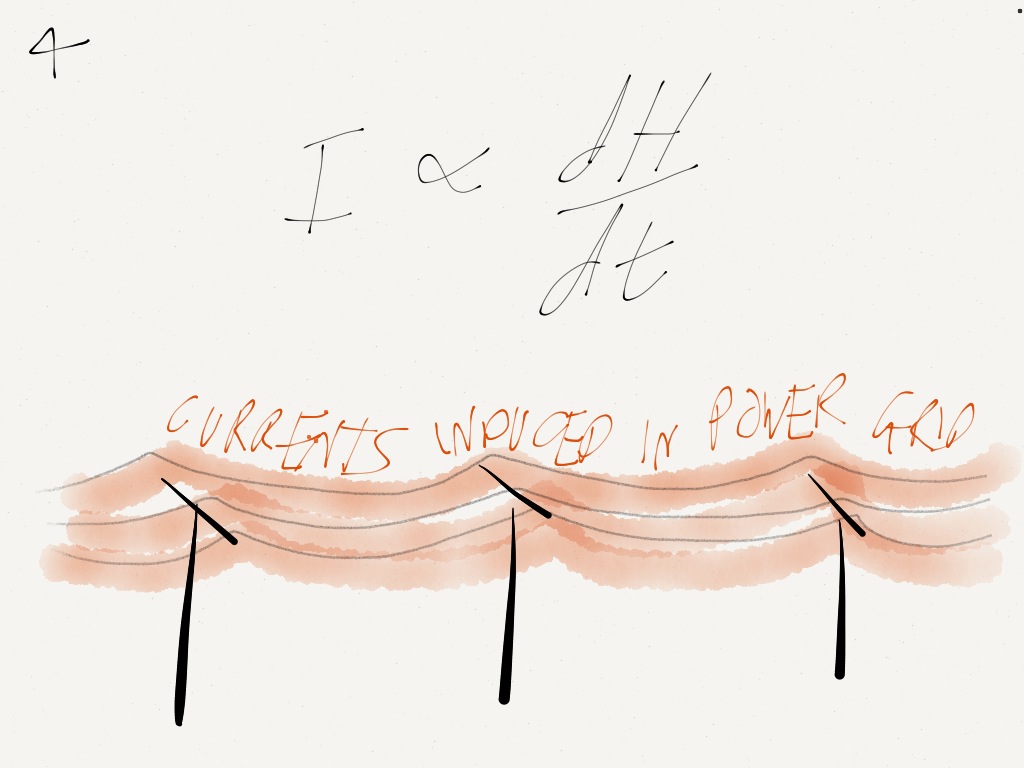 4
I ∝ dH/dt
CURRENTS INDUCED IN POWER GRID